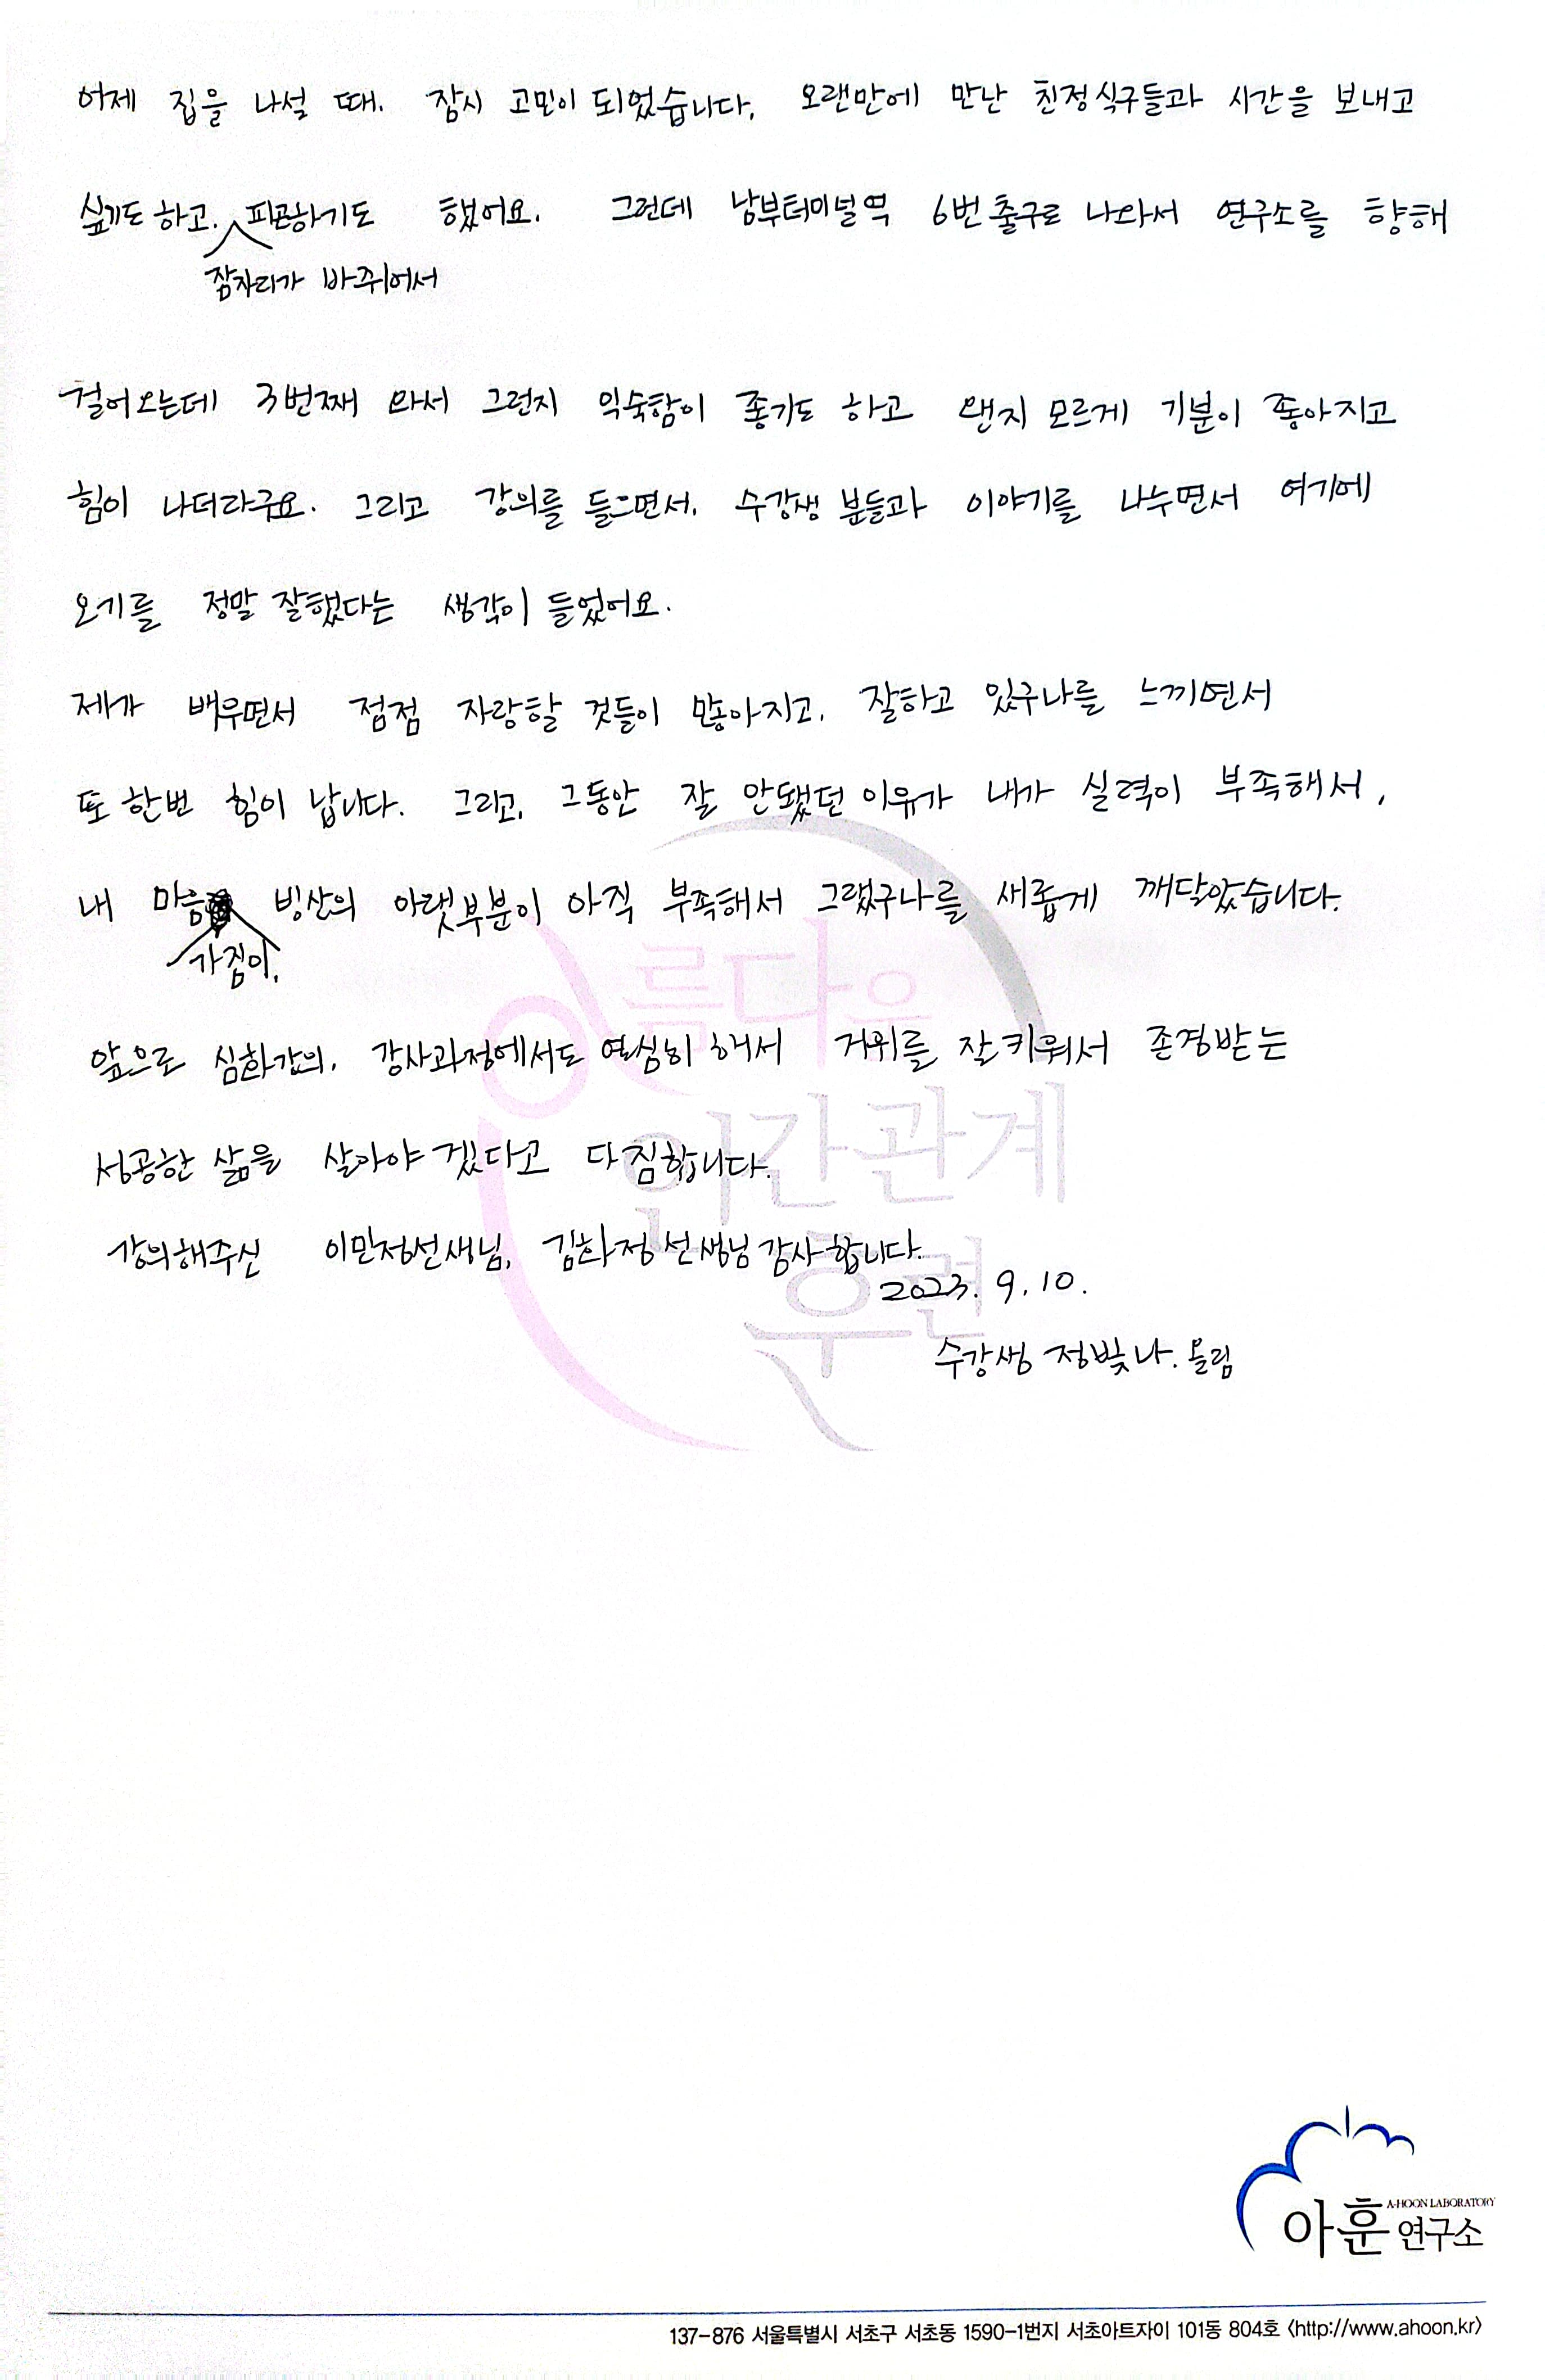 어제 집을 나설 때. 잠시 고민이 되었습니다. 오랜만에 만난 친정식구들과 시간을 보내고
싶기도 하고. 피곤하기도 했어요. 그런데 남부터미널역 6번출구로 나와서 연구소를 향해
잠자리가 바뀌어서
걸어오는데 3번째 와서 그런지 익숙함이 좋기도 하고 왠지 모르게 기분이 좋아지고
힘이 나더라구요. 그리고 강의를 들으면서. 수강생 분들과 이야기를 나누면서 여기에
오기를 정말 잘했다는 생각이 들었어요.
제가 배우면서 점점 자랑할 것들이 많아지고. 잘하고 있구나를 느끼면서
또 한번 힘이 납니다. 그리고, 그동안 잘 안됐던 이유가 내가 실력이 부족해서,
내 마음 빙산의 아랫부분이 아직 부족해서 그랬구나를 새롭게 깨달았습니다.
가짐이,
앞으로 심화강의, 강사과정에서도 열심히 해서 거위를 잘 키워서 존경받는
성공한 삶을 살아야 겠다고 다짐합니다.
강의해주신 이민정선생님, 김화정선생님 감사합니다.
2023. 9. 10.
수강생 정빛나. 올림
아름다운
인간관계
훈련
A-HOON LABORATORY
아훈 연구소
137-876 서울특별시 서초구 서초동 1590-1번지 서초아트자이 101동 804호 <http://www.ahoon.kr>